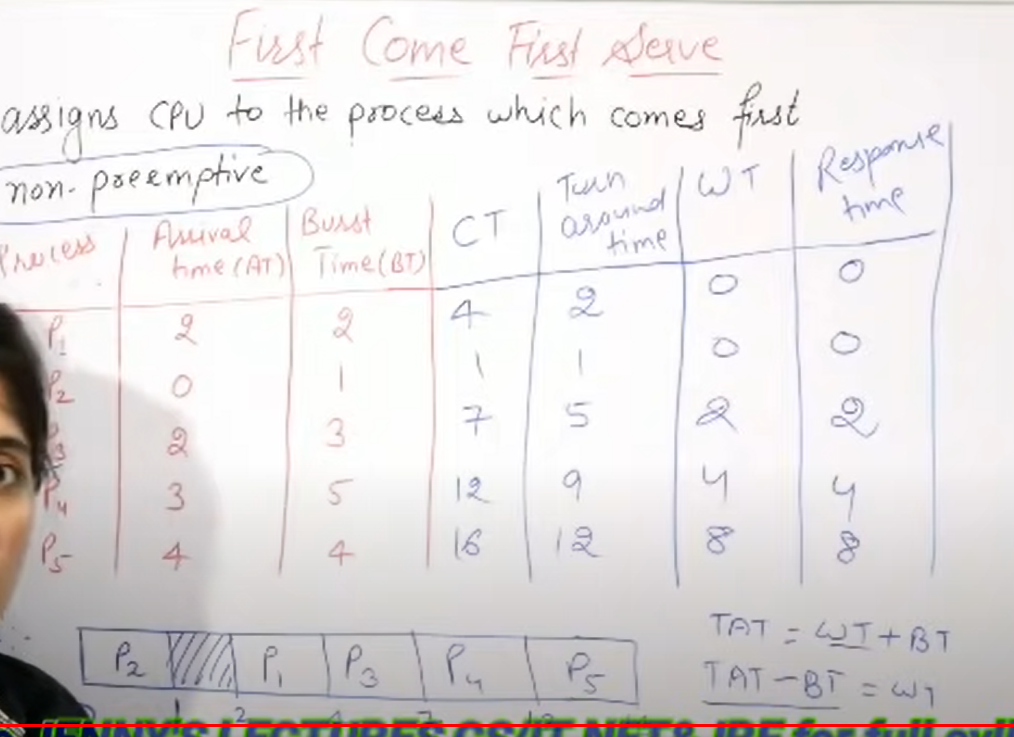 First Come First Serve
assigns CPU to the process which comes first
non-preemptive
Process Arrival time (AT) Burst Time (BT) CT Turn around time WT Response time
P1 2 2 4 2 0 0
P2 0 1 1 1 0 0
3 2 3 7 5 2 2
P4 3 5 12 9 4 4
P5 4 4 16 12 8 8
P2 P1 P3 P4 P5
TAT = WT + BT
TAT - BT = WT
JENNY'S LECTURES CS/IT NET&JRF for full